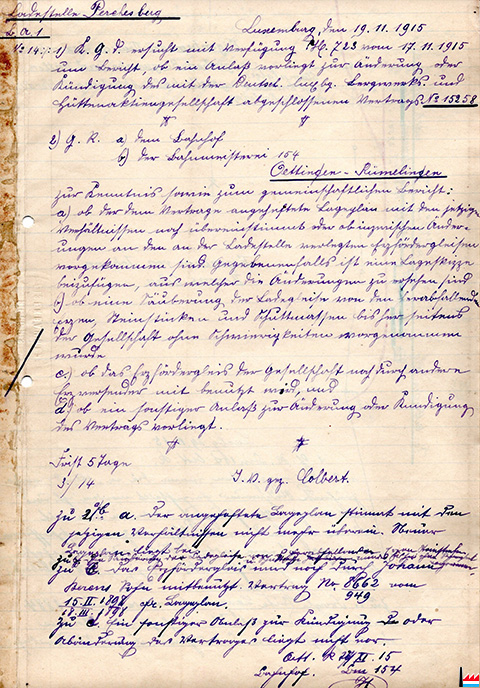 Ladestelle Perchesberg
L a 1
Luxemburg, den 19. 11. 1915
No 14. 1) K. G. D. ersucht mit Verfügung 223 vom 17. 11. 1915
um Bericht, ob ein Anlaß vorliegt zur Änderung oder
Kündigung des mit der Deutsch. lux. bg. Bergwerks- und
Hüttenaktiengesellschaft abgeschlossenen Vertrags No 15258
2) G. R. a) dem Bahnhof
b) der Bahnmeisterei 154
Oettingen-Rümelingen
zur Kenntnis sowie zum gemeinschaftlichen Bericht:
a) ob der dem Vertrage angeheftete Lageplan mit den jetzigen
Verhältnissen noch übereinstimmt oder ob inzwischen Änder-
ungen an den an der Ladestelle verlegten Erzfördergleisen
vorgekommen sind. Gegebenenfalls ist eine Lageskizze
beizufügen, aus welcher die Änderungen zu ersehen sind
b) ob eine Säuberung der Ladegleise von den herabfallenden
Erzen, Steinstücken und Schuttmassen bisher seitens
der Gesellschaft ohne Schwierigkeiten vorgenommen
wurde
c.) ob das Erzfördergleis der Gesellschaft noch durch andere
Erzversender mit benutzt wird, und
d) ob ein sonstiger Anlaß zur Änderung oder Kündigung
des Vertrags vorliegt.
Frist 5 Tage
3/14 I. V. gez. Colbert.
zu 2) a. Der angeheftete Lageplan stimmt mit den
jetzigen Verhältnissen nicht mehr überein. Neuer
Lageplan liegt bei
zu c. Das Erzfördergleis wird noch durch Johann
Berens Sohn mitbenützt. Vertrag No 8662 vom
949
15. II. 1898 Lageplan.
18. III. 1898
zu d. Ein sonstiger Anlaß zur Kündigung oder
Abänderung des Vertrages liegt nicht vor.
Oett. R XI. 15
Bahnhof. Bm 154